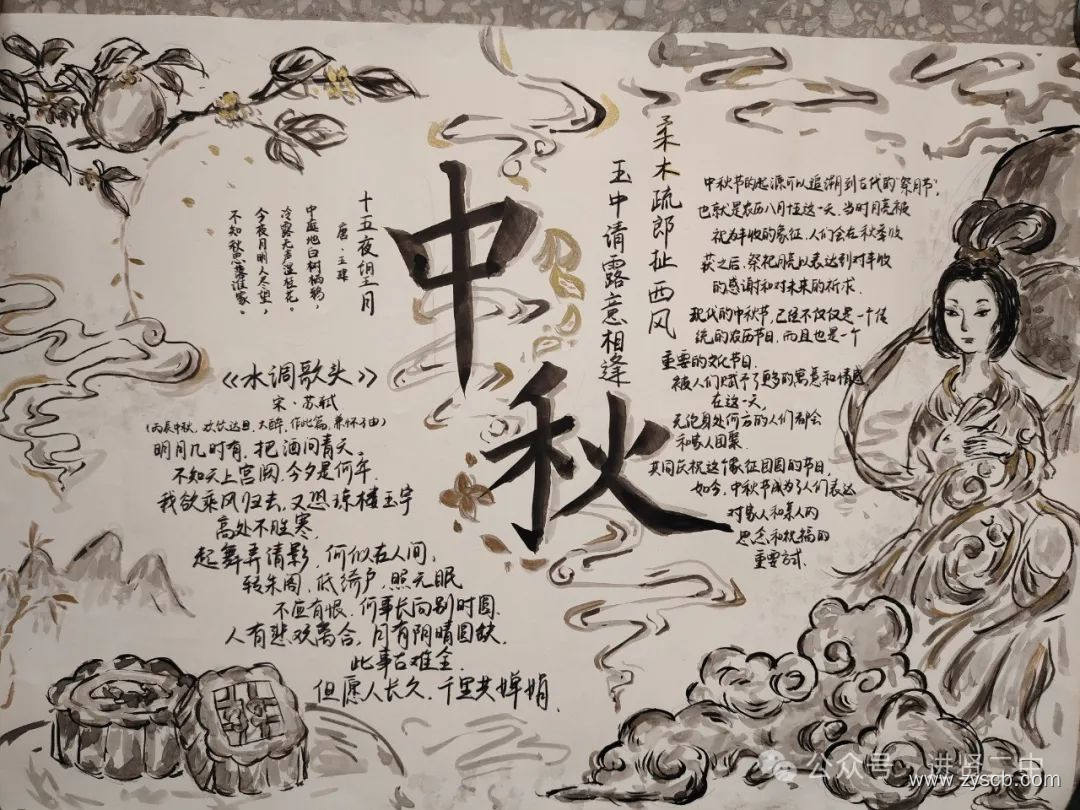 中秋
十五夜望月
唐·王建
中庭地白树栖鸦,
冷露无声湿桂花。
今夜月明人尽望,
不知秋思落谁家。
《水调歌头》
宋·苏轼
(丙辰中秋,欢饮达旦,大醉,作此篇,兼怀子由)
明月几时有,把酒问青天。
不知天上宫阙,今夕是何年.
我欲乘风归去,又恐琼楼玉宇
高处不胜寒,
起舞弄清影,何似在人间,
转朱阁,低绮户,照无眠
不应有恨,何事长向别时圆.
人有悲欢离合,月有阴晴圆缺.
此事古难全.
但愿人长久,千里共婵娟.
柔木疏郎扯西风
玉中请露意相逢
中秋节的起源可以追溯到古代的"祭月节",
也就是农历八月恒这一天,当时月亮被
视为丰收的象征,人们会在秋季收
获之后,祭祀月亮以表达到对丰收
的感谢和对未来的祈求.
现代的中秋节,已经不仅仅是一个传
统的农历节日,而且也是一个
重要的文化节日.
被人们赋予了更多的寓意和情感
在这一天,
无论身处何方的人们都会
和家人团聚
共同庆祝这个象征团圆的节日,
如今,中秋节成为了人们表达
对家人和亲人的
思念和祝福的
重要方式.
公众号
www.zyscb.com